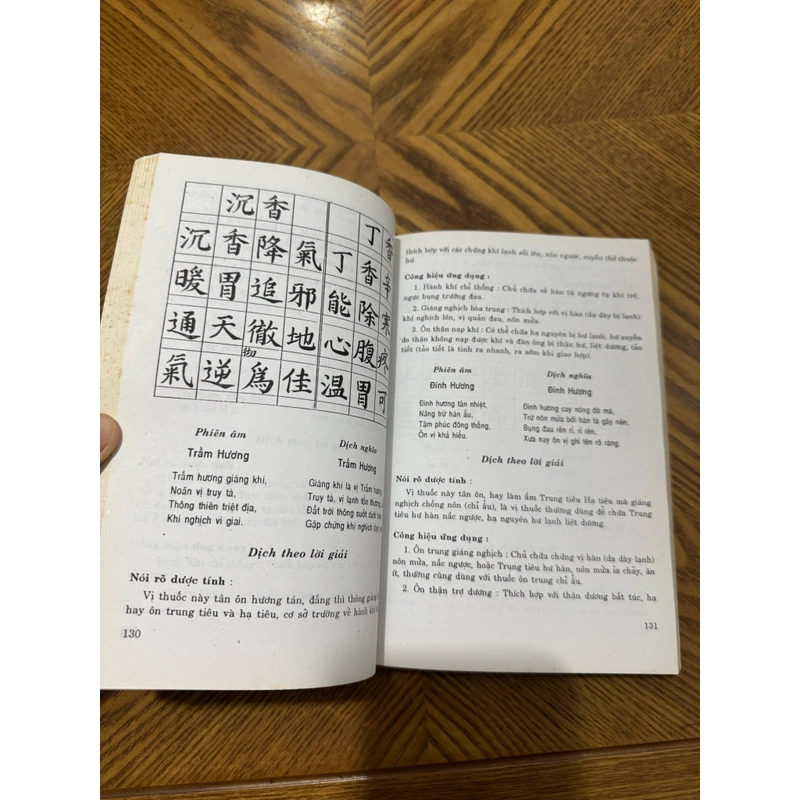 沉香
沉香降氣
暖胃追邪
通天徹地
氣逆爲佳
丁香
丁香辛
能除寒
心腹疼
溫胃可
Phiên âm
Trầm Hương
Trầm hương giáng khí,
Noãn vị truy tà,
Thông thiên triệt địa,
Khí nghịch vi giai.
Dịch nghĩa
Trầm Hương
Giáng khí là vị Trầm hương
Truy tà, vị lạnh tổn thương
Đất trời thông suốt dưới
Gặp chứng khí nghịch
Dịch theo lời giải
Nói rõ dược tính :
Vị thuốc này tân ôn hương tán, đắng thì thông giáng
hay ôn trung tiêu và hạ tiêu, cơ sở trường về hành khí
130
thích hợp với các chứng khí lạnh sốl lên, nôn ngược, suyễn thở thuộc
hư.
Công hiệu ứng dụng :
1. Hành khí chỉ thống : Chủ chữa về hàn tà ngưng tụ khí trệ,
ngực bụng trướng đau.
2. Giáng nghịch hòa trung : Thích hợp với vị hàn (dạ dày bị lạnh)
khí nghịch lên, vị quản đau, nôn mửa.
3. Ôn thận nạp khí : Có thể chữa hạ nguyên bị hư lạnh, hư suyễn
do thận không nạp được khí và đàn ông bị thận hư, liệt dương, tảo
tiết (tảo tiết là tinh ra nhanh, ra sớm khi giao hợp).
Phiên âm
Đinh Hương
Đinh hương tân nhiệt,
Năng trừ hàn ẩu,
Tâm phúc đông thống,
Ôn vị khả hiểu.
Dịch nghĩa
Đinh Hương
Đinh hương cay nóng đó mà,
Trừ nôn mửa bởi hàn tà gây nên,
Bụng đau rên rỉ, rỉ rên,
Xưa nay ôn vị ghi tên rõ ràng.
Dịch theo lời giải
Nói rõ dược tính :
Vị thuốc này tân ôn, hay làm ấm Trung tiêu Hạ tiêu mà giáng
nghịch chống nôn (chỉ ẩu), là vị thuốc thường dùng để chữa Trung
tiêu hư hàn nấc ngược, hạ nguyên hư lạnh liệt dương.
Công hiệu ứng dụng :
1. Ôn trung giáng nghịch : Chủ chữa chứng vị hàn (dạ dày lạnh)
nôn mửa, nấc ngược, hoặc Trung tiêu hư hàn, nôn mửa ỉa chảy, ăn
ít, thường cùng dùng với thuốc ôn trung chỉ ẩu.
2. Ôn thận trợ dương : Thích hợp với thận dương bất túc, hạ
131